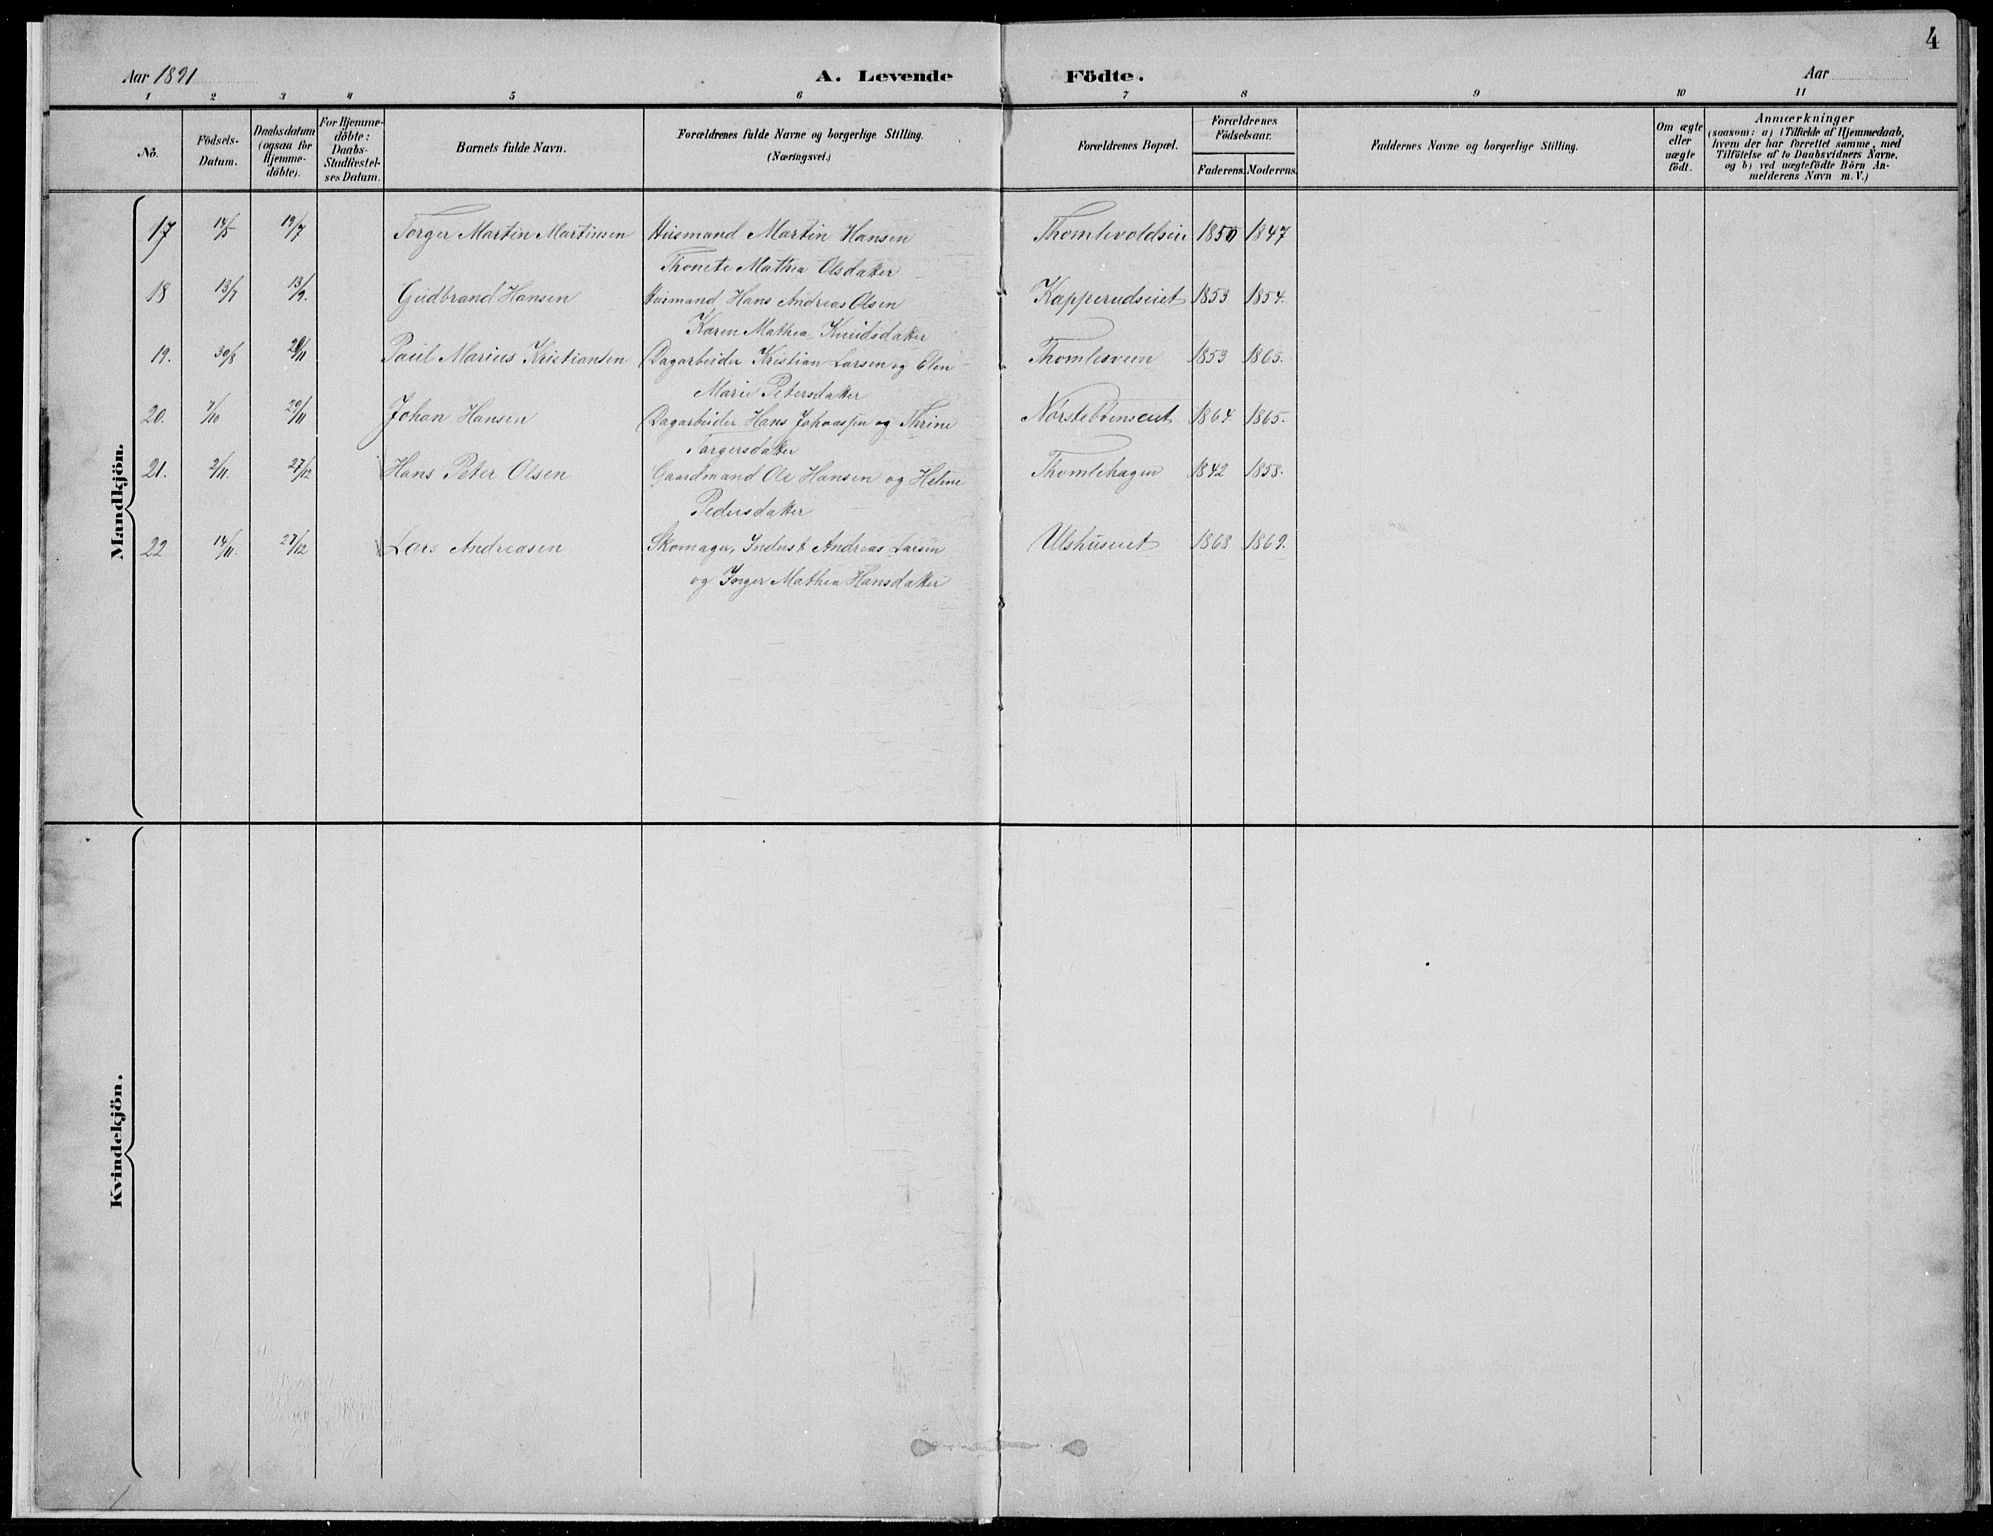 4
Aar 1891
A. Levende Födte.
Aar
1 2 3 4 5 6 7 8 9 10 11
No.
Födsels-Datum.
Daabsdatum (ogsaa for Hjemme-döbte).
For Hjemme-döbte: Daabs-Stadfæstel-ses Datum.
Barnets fulde Navn.
Forældrenes fulde Navne og borgerlige Stilling.
(Næringsvei.)
Forældrenes Bopæl.
Forældrenes Födselsaar.
Faderens. Moderens.
Faddernes Navne og borgerlige Stilling.
Om ægte eller uægte födt.
Anmærkninger
(saasom: a) i Tilfælde af Hjemmedaab, hvem der har forrettet samme, med Tilföielse af to Daabsvidners Navne, og b) ved uægtefödte Börn An-melderens Navn m. V.)
Mandkjön.
17 14/5 19/7 Torger Martin Martinsen Husmand Martin Hansen Thomlevoldseie 1850 1847
Thonete Mathea Olsdatter
18 13/7 13/9. Gudbrand Hansen Husmand Hans Andreas Olsen Kapperudseiet 1853 1854.
Karen Mathea Knudsdatter
19. 30/8 /11 Paul Marius Kristiansen Dagarbeider Kristian Larsen og Elen Thomlesveen 1853 1863.
Marie Petersdatter
20. 7/10 29/11 Johan Hansen Dagarbeider Hans Johanssen og Thrine Nörstebbenseiet 1864 1865.
Torgersdatter
21. 2/11. 27/12 Hans Peter Olsen Gaardmand Ole Hansen og Helene Thomlehagen 1842 1858.
Pedersdatter
22 14/11. 27/12 Lars Andreasen Skomager, Inderst Andreas Larsen Ulshuseiet 1868 1869.
og Inger Mathea Hansdatter
Kvindekjön.